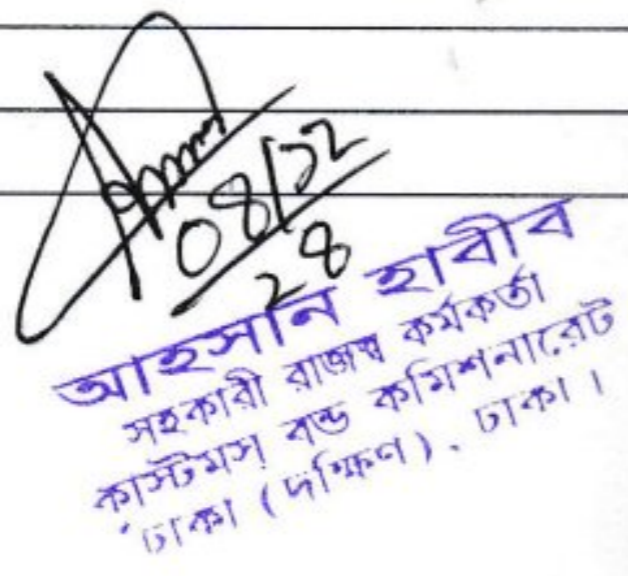 ০৪/১২
২৪
আহসান হাবীব
সহকারী রাজস্ব কর্মকর্তা
কাস্টমস্ বন্ড কমিশনারেট
ঢাকা (দক্ষিণ), ঢাকা।